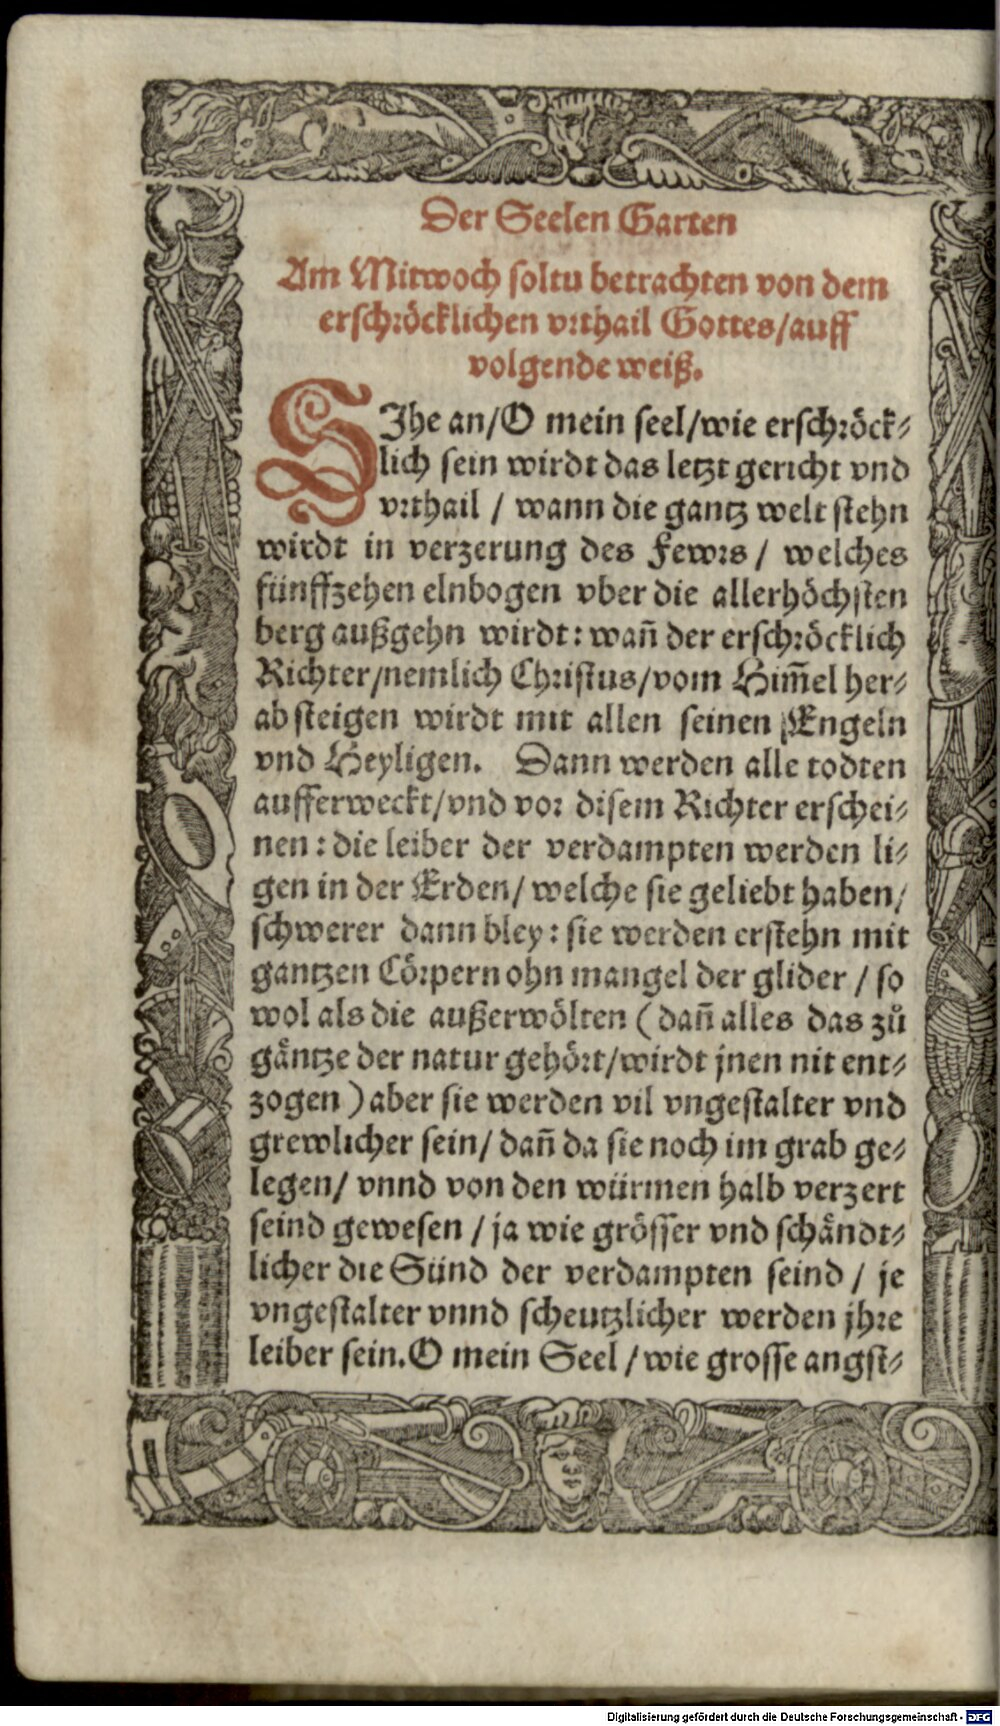 Der Seelen Garten
Am Mitwoch soltu betrachten von dem
erschröcklichen vrthail Gottes/auff
volgende weiß.
SIhe an/O mein seel/wie erschröck-
lich sein wirdt das letzt gericht vnd
vrthail / wann die gantz welt stehn
wirdt in verzerung des Fewrs / welches
fünffzehen elnbogen vber die allerhöchsten
berg außgehn wirdt: wañ der erschröcklich
Richter/nemlich Christus/vom Him̃el her-
ab steigen wirdt mit allen seinen Engeln
vnd Heyligen. Dann werden alle todten
aufferweckt/vnd vor disem Richter erschei-
nen: die leiber der verdampten werden li-
gen in der Erden/ welche sie geliebt haben/
schwerer dann bley: sie werden erstehn mit
gantzen Cörpern ohn mangel der glider / so
wol als die außerwölten (dañ alles das zů
gäntze der natur gehört/wirdt jnen nit ent-
zogen) aber sie werden vil vngestalter vnd
grewlicher sein/ dañ da sie noch im grab ge-
legen/ vnnd von den würmen halb verzert
seind gewesen / ja wie grösser vnd schändt-
licher die Sünd der verdampten seind / je
vngestalter vnnd scheutzlicher werden jhre
leiber sein. O mein Seel / wie grosse angst-
Digitalisierung gefördert durch die Deutsche Forschungsgemeinschaft - DFG